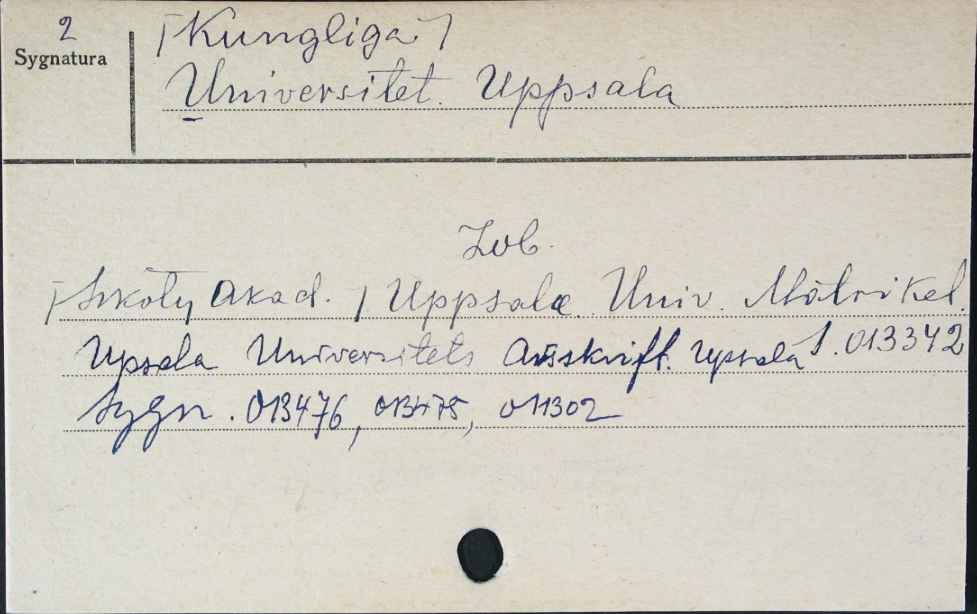 2
Sygnatura
/Kungliga/
Universitet. Uppsala
Zob.
/Szkoły Akad./ Uppsala. Univ. Matrikel.
Upsala Universitets Årsskrift. Upsala S. 013342
Sygn. 013476, 013475, 011302